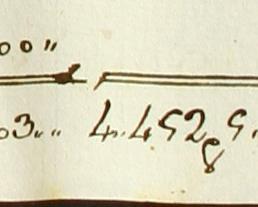 00"
03.." 4.4528 5.